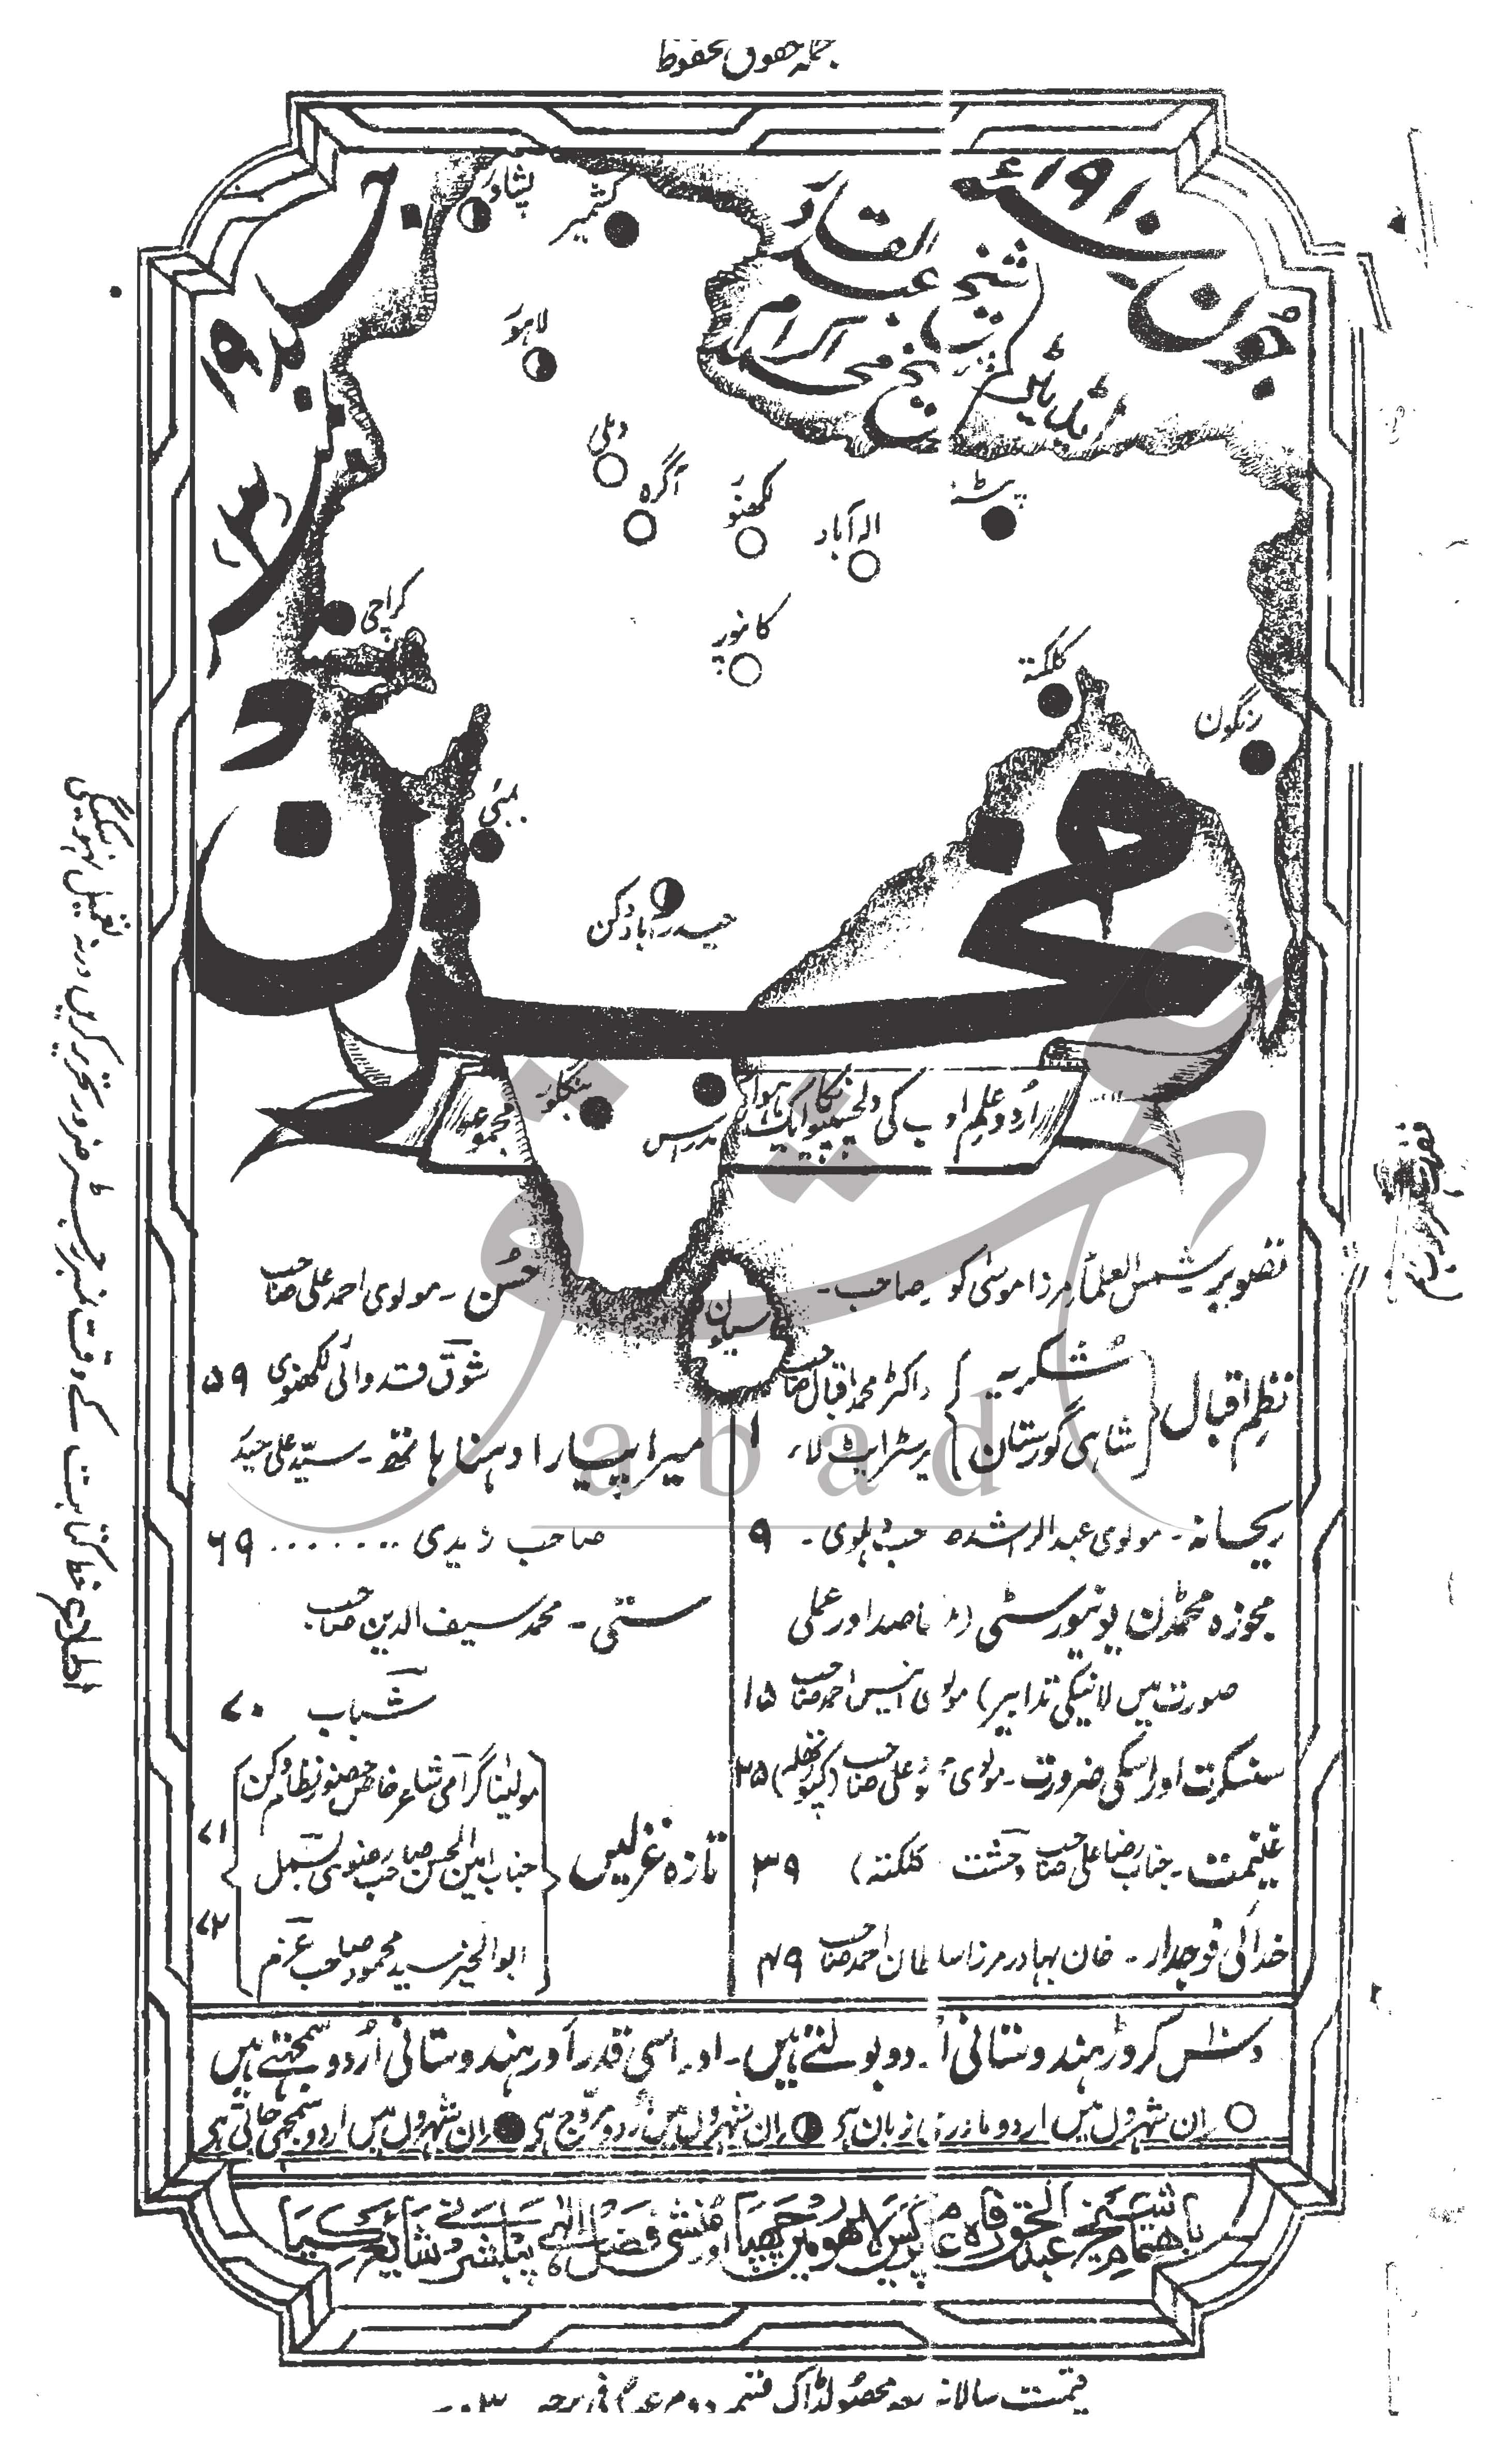 جملہ حقوق محفوظ
جون ۱۹۱۰ء
ایڈیٹر
شیخ عبدالقادر
شیخ محمد اکرام
جلد ۱۹
نمبر ۳
پشاور
کشمیر
لاہور
دہلی
آگرہ
لکھنؤ
الہ آباد
پٹنہ
کراچی
کانپور
کلکتہ
رنگون
بمبئی
حیدرآباد دکن
مخزن
بنگلور
مدراس
اردو علم ادب کی دلچسپیوں کا ایک
مجموعہ
سیلون
تصویر شمس العلماء مرزا موسیٰ صاحب۔
نظم اقبال { شکریہ شاہی گورستان } ڈاکٹر محمد اقبال صاحب بیرسٹر ایٹ لاء ۱
ریحانہ۔ مولوی عبدالراشد صاحب دہلوی۔ ۹
مجوزہ محمڈن یونیورسٹی (مقاصد اور عملی
صورت میں لانیکی تدابیر) مولوی انیس احمد صاحب ۱۵
سنسکرت اور اسکی ضرورت۔ مولوی علی صاحب (کپورتھلہ) ۳۵
غنیمت۔ جناب رضا علی صاحب وحشت کلکتہ) ۳۹
خدائی فوجدار۔ خان بہادر مرزا سلطان احمد صاحب ۴۹
حُسن۔ مولوی احمد علی صاحب
شوق قدوائی لکھنوی ۵۹
میرا پیارا دہنا ہاتھ۔ سید علی حیدر
صاحب زیدی ........ ۶۹
ستی۔ محمد سیف الدین صاحب
شباب ۷۰
تازہ غزلیں
مولینا گرامی شاعر خاص حضور نظام دکن
جناب امین الحسن صاحب رضوی بسمل ۷۱
ابوالخیر سید محمود صاحب عزم ۷۲
دس کروڑ ہندوستانی اردو بولتے ہیں۔ اور اسی قدر اور ہندوستانی اُردو سمجھتے ہیں
ان شہروں میں اردو مادری زبان ہی ان شہروں میں اردو مروّج ہی ان شہروں میں اردو سمجھی جاتی ہے
باہتمام شیخ عبدالحق رفاہ عام پریس لاہور میں چھپا اور منشی فضل الٰہی پبلشر نے شائع کیا
قیمت سالانہ معہ محصولڈاک قسم دوم فی پرچہ
خط کتابت کے وقت نمبر چٹ ضرور تحریر کریں ورنہ تعمیل نہو سکیگی
abad